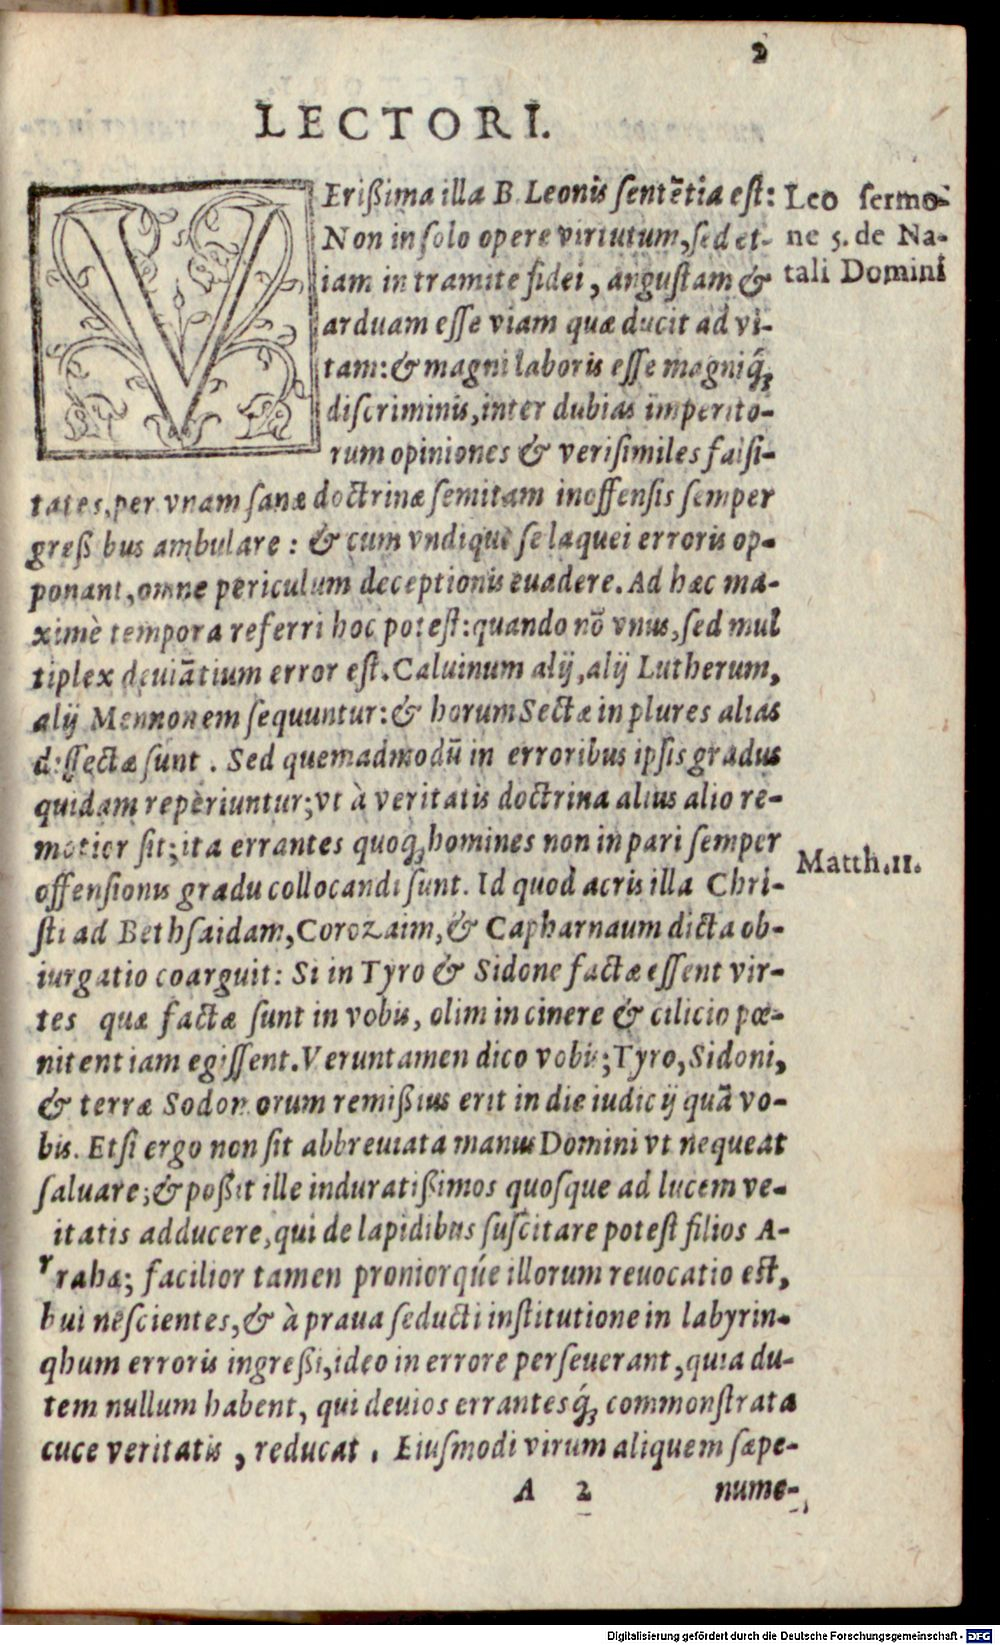 2
LECTORI.
VErißima illa B. Leonis sentētia est:
Non in solo opere virtutum, sed et-
iam in tramite fidei, angustam &
arduam esse viam quæ ducit ad vi-
tam: & magni laboris esse magniq́;
discriminis, inter dubias imperito-
rum opiniones & verisimiles falsi-
tates, per vnam sanæ doctrinæ semitam inoffensis semper
greß bus ambulare: & cum vndique se laquei erroris op-
ponant, omne periculum deceptionis euadere. Ad hæc ma-
ximè tempora referri hoc potest: quando nō vnus, sed mul
tiplex deuiātium error est. Caluinum alij, alij Lutherum,
alij Mennonem sequuntur: & horum Sectæ in plures alias
dissectæ sunt. Sed quemadmodū in erroribus ipsis gradus
quidam reperiuntur; vt à veritatis doctrina alius alio re-
motior sit; ita errantes quoq; homines non in pari semper
offensionis gradu collocandi sunt. Id quod acris illa Chri-
sti ad Bethsaidam, Corozaim, & Capharnaum dicta ob-
iurgatio coarguit: Si in Tyro & Sidone factæ essent vir-
tes quæ factæ sunt in vobis, olim in cinere & cilicio pœ-
nitentiam egissent. Veruntamen dico vobis; Tyro, Sidoni,
& terræ Sodomorum remißius erit in die iudicij quā vo-
bis. Etsi ergo non sit abbreuiata manus Domini vt nequeat
saluare; & poßit ille induratißimos quosque ad lucem ve-
itatis adducere, qui de lapidibus suscitare potest filios A-
rrahæ; facilior tamen proniorq́ue illorum reuocatio est,
bui nescientes, & à praua seducti institutione in labyrin-
qhum erroris ingreßi, ideo in errore perseuerant, quia du-
tem nullum habent, qui deuios errantesq́; commonstrata
cuce veritatis, reducat. Eiusmodi virum aliquem sæpe-
A 2 nume-
Leo sermo-
ne 5. de Na-
tali Domini
Matth. 11.
Digitalisierung gefördert durch die Deutsche Forschungsgemeinschaft - DFG